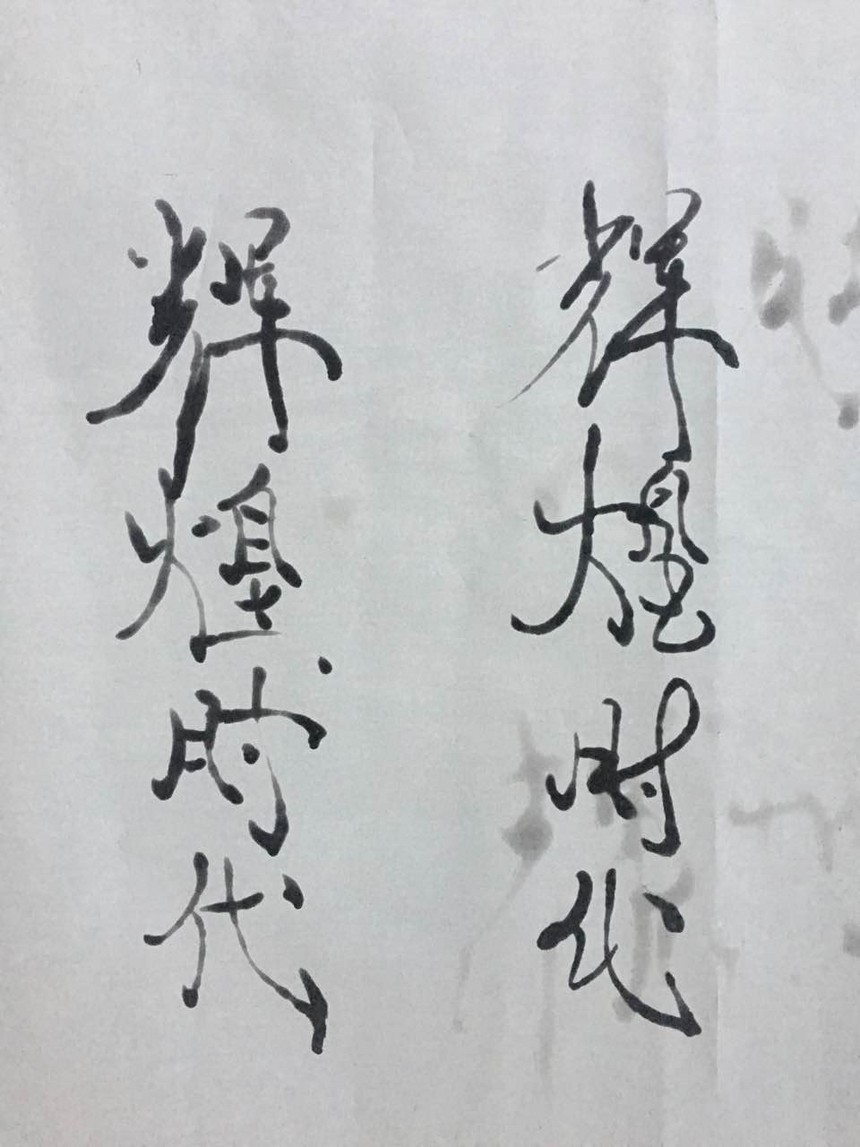 辉煌时代
辉煌时代